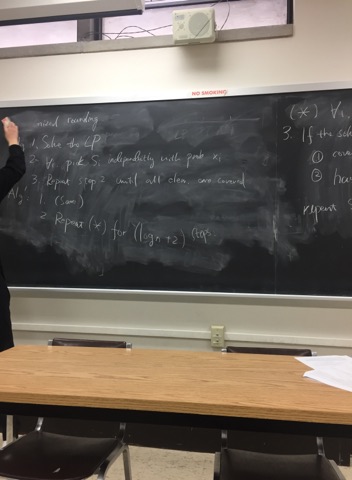 NO SMOKING
mixed rounding
1. Solve the LP
2. ∀i, pick Si independently with prob xi
3. Repeat step 2 until all elem. are covered
1. (same)
2. Repeat (*) for (log n + 2) steps.
(*) ∀i,
3. If the sol
① cove
②
repeat S